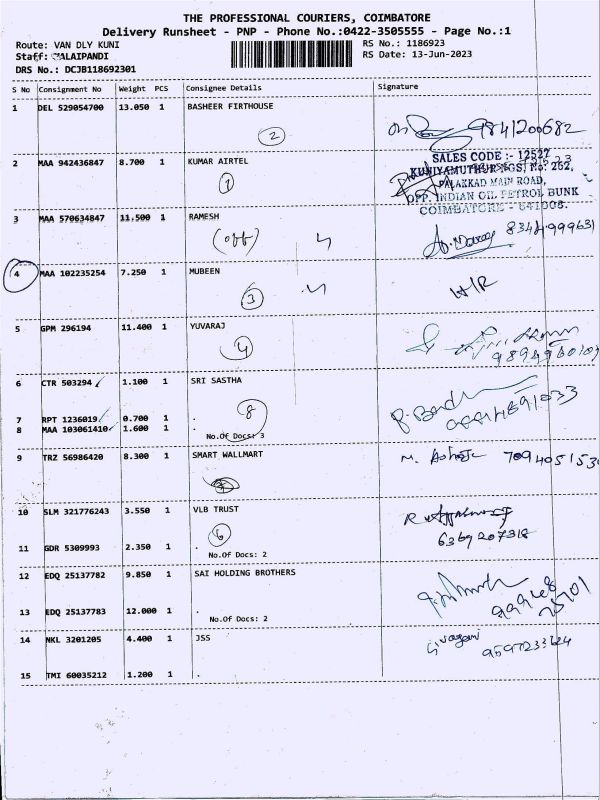 THE PROFESSIONAL COURIERS, COIMBATORE
Delivery Runsheet - PNP - Phone No.:0422-3505555 - Page No.:1
Route: VAN DLY KUNI RS No.: 1186923
Staff: MALAIPANDI RS Date: 13-Jun-2023
DRS No.: DCJB118692301
S No Consignment No Weight PCS Consignee Details Signature
1 DEL 529054700 13.050 1 BASHEER FIRTHOUSE
2 9841200682
SALES CODE :- 12527
2 MAA 942436847 8.700 1 KUMAR AIRTEL
KUNIYAMUTHUR NO. 262,
1 PALAKKAD MAIN ROAD,
OPP. INDIAN OIL PETROL BUNK
COIMBATORE - 641008.
3 MAA 570634847 11.500 1 RAMESH
(off)
4 MAA 102235254 7.250 1 MUBEEN
3 H/R
5 GPM 296194 11.400 1 YUVARAJ
4
6 CTR 503294 1.100 1 SRI SASTHA
8
7 RPT 1236019 0.700 1 .
8 MAA 103061410 1.600 1 .
No.Of Docs: 3
9 TRZ 56986420 8.300 1 SMART WALLMART
M. 7094051530
10 SLM 321776243 3.550 1 VLB TRUST
6
6369207318
11 GDR 5309993 2.350 1 .
No.Of Docs: 2
12 EDQ 25137782 9.850 1 SAI HOLDING BROTHERS
13 EDQ 25137783 12.000 1 .
No.Of Docs: 2
14 NKL 3201205 4.400 1 JSS
15 TMI 60035212 1.200 1 .